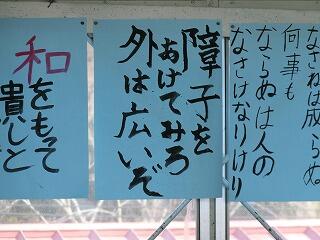 なさねば成らぬ
何事も
ならぬは人の
なさけなりけり
障子を
あけてみろ
外は広いぞ
和をもって
貴しと